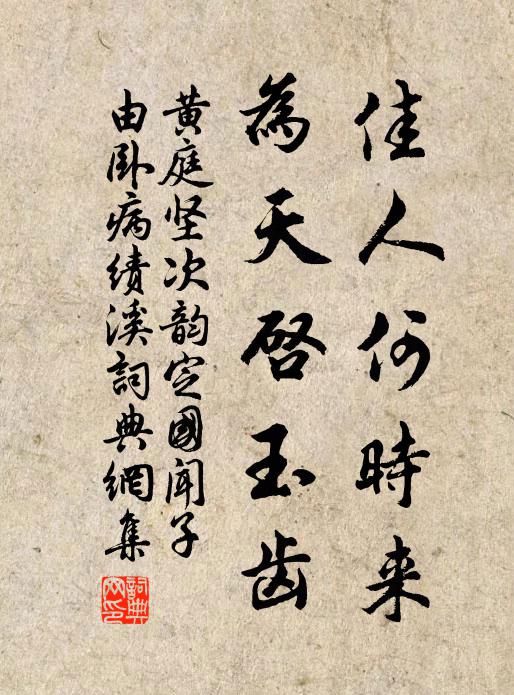 佳人何時来
為天啓玉齿
黄庭坚次韵定國聞子
由卧病績溪詞典網集
詞典
网印